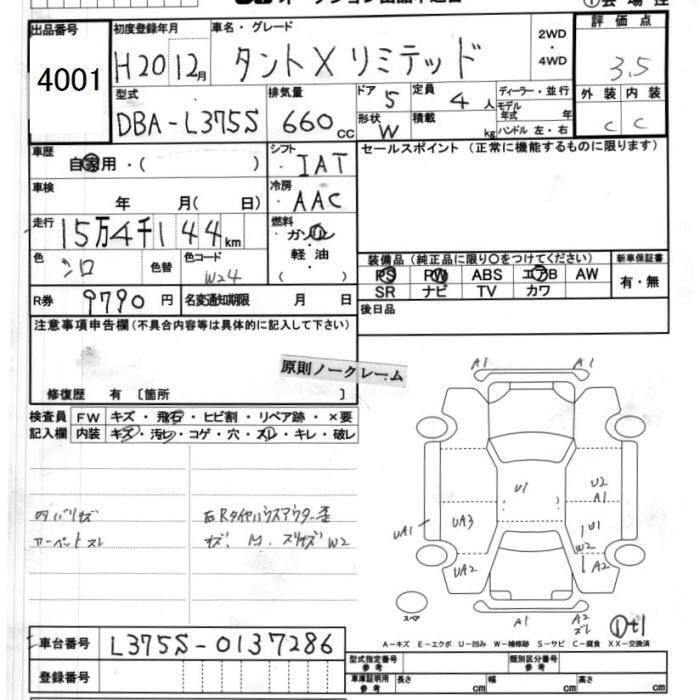 出品番号 初度登録年月 車名・グレード 2WD・4WD 評価点
4001 H20 12月 タントX リミテッド 3.5
型式 排気量 ドア 5 定員 4人 ディーラー・並行 外装 内装
モデル年式 年
DBA-L375S 660cc 形状 W 積載 kg ハンドル 左・右 C C
車歴 シフト セールスポイント (正常に機能するものに限ります)
自家用・( ) IAT
車検 冷房
年 月( 日) AAC
走行 15万4千144km 燃料
ガソリン・軽油
( )
色 シロ 色替 色コード W24 装備品 (純正品に限り〇をつけてください) 新車保証書
PS PW ABS エアB AW 有・無
SR ナビ TV カワ
R券 9790円 名変通知期限 月 日 後日品
注意事項申告欄 (不具合内容等は具体的に記入して下さい)
原則ノークレーム
修復歴 有 〔箇所 〕
検査員 FW キズ・飛石・ヒビ割・リペア跡・×要
記入欄 内装 キズ・汚レ・コゲ・穴・スレ・キレ・破レ
内バリキズ 右Rタイヤハウスアウター歪
カーペットスレ W2
A1 A1
U1
U2
A1
UA1 UA3
U1
W2
UA2 A2
スペア
A1 A2
スレ
A-キズ E-エクボ U-凹み W-補修跡 S-サビ C-腐食 XX-交換済
車台番号 L375S-0137286
型式指定番号 参考 類別区分番号 参考
登録番号
車庫証明用 参考 長さ cm 幅 cm 高さ cm